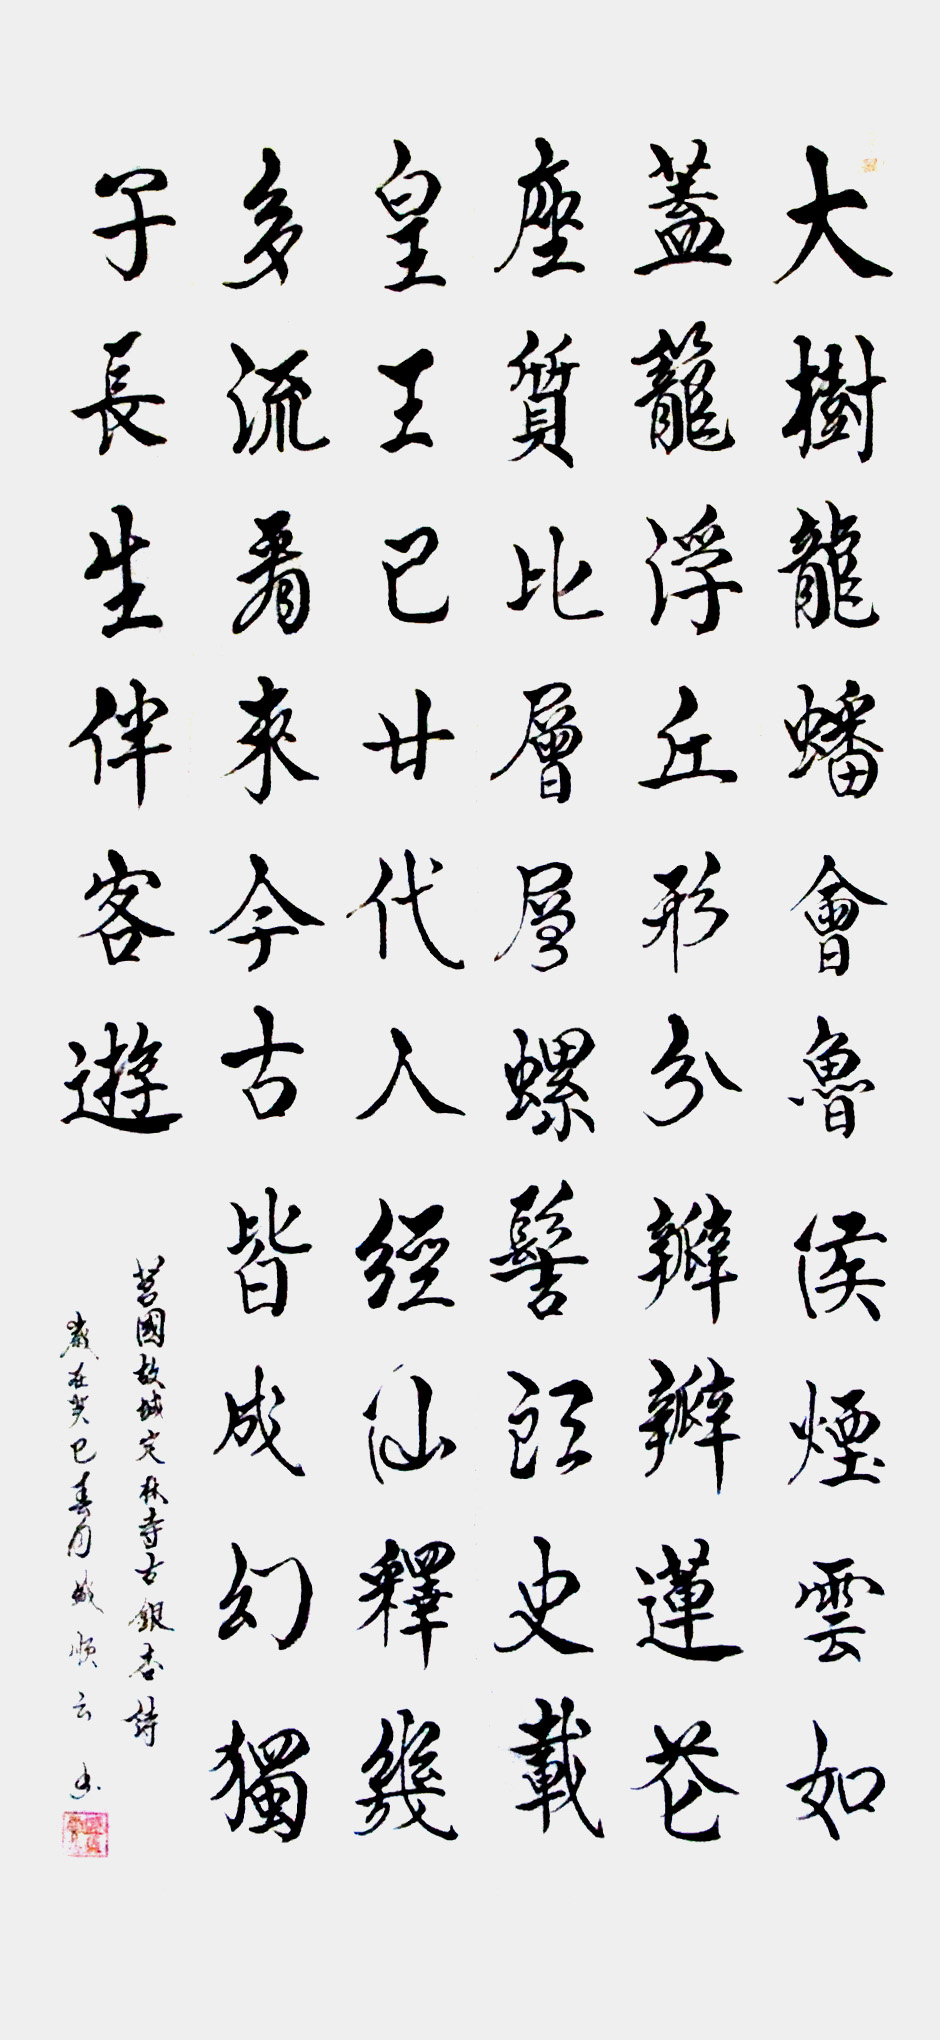 大樹龍蟠會魯侯煙雲如
蓋籠浮丘形分瓣瓣蓮花
座質比層層螺髻頭史載
皇王已廿代人經仙釋幾
多流看來今古皆成幻獨
子長生伴客遊
莒國故城定林寺古銀杏詩
歲在癸巳春月盛順云书